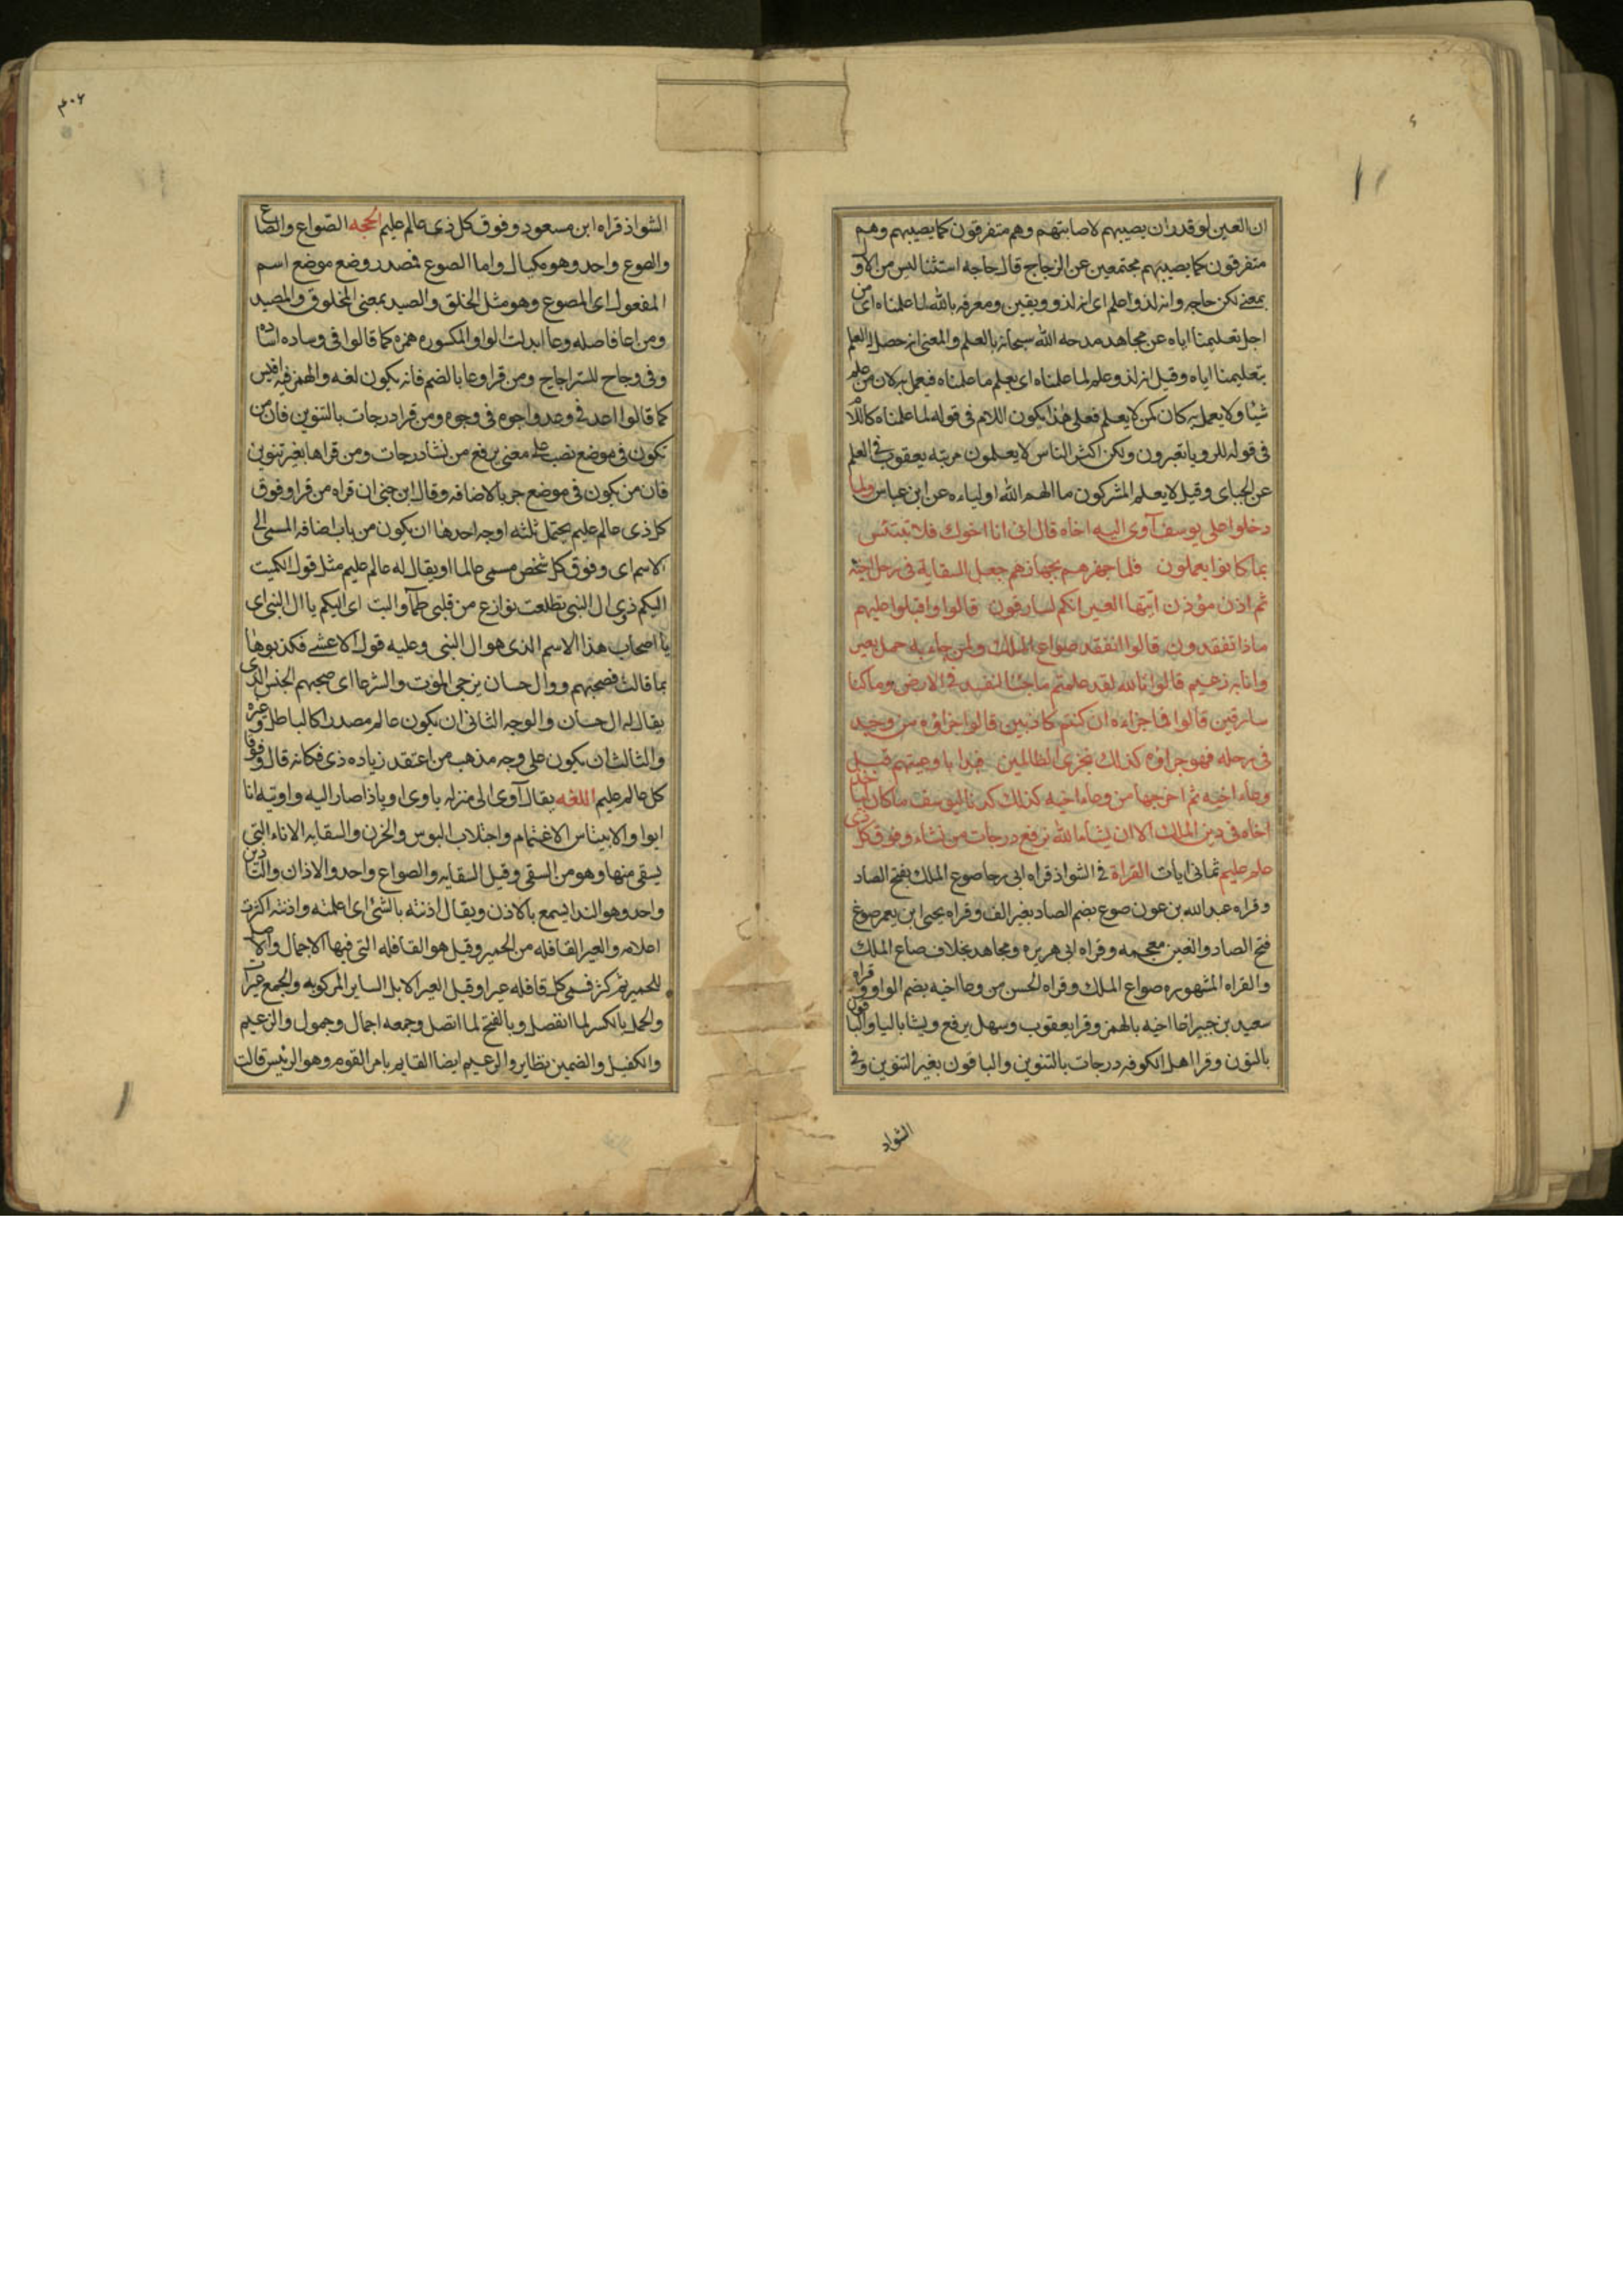 ان العين لو قدر ان يصيبهم لاصابتهم وهم متفرقون كما يصيبهم وهم
متفرقون كما يصيبهم مجتمعين عن الزجاج قال حاجه استثنا ليس من الاول
بمعنى لكن حاجه وانه لذو علم اى انه لذو ويقين ومعرفه بالله لما علمناه اى من
اجل تعليمنا اياه عن مجاهد مدحه الله سبحانه بالعلم والمعنى انه حصل له العلم
بتعليمنا اياه وقيل انه لذو علم لما علمناه اى يعلم ما علمناه فيعمل به لان من علم
شيئا ولا يعمل به كان كمن لا يعلم فعلى هذا يكون اللام فى قوله لما علمناه كاللام
فى قوله للرويا تعبرون ولكن اكثر الناس لا يعلمون مرتبه يعقوب فى العلم
عن الجباى وقيل لا يعلم المشركون ما الهم الله اولياءه عن ابن عباس ولما
دخلوا على يوسف آوى اليه اخاه قال انى انا اخوك فلا تبتئس
بما كانوا يعملون فلما جهزهم بجهازهم جعل السقاية فى رحل اخيه
ثم اذن مؤذن ايتها العير انكم لسارقون قالوا واقبلوا عليهم
ماذا تفقدون قالوا نفقد صواع الملك ولمن جاء به حمل بعير
وانا به زعيم قالوا تالله لقد علمتم ما جئنا لنفسد فى الارض وما كنا
سارقين قالوا فما جزاءه ان كنتم كاذبين قالوا جزاؤه من وجد
فى رحله فهو جزاؤه كذلك نجزى الظالمين فبدا باوعيتهم قبل
وعاء اخيه ثم استخرجها من وعاء اخيه كذلك كدنا ليوسف ما كان لياخذ
اخاه فى دين الملك الا ان يشاء الله نرفع درجات من نشاء وفوق كل ذى
علم عليم ثمانى ايات القراة فى الشواذ قراه ابى رجا صوع الملك بفتح الصاد
وقراه عبدالله بن عون صوع بضم الصاد بغير الف وقراه يحيى ابن يعمر صوغ
فتح الصاد والغين معجمه وقراه ابى هريره ومجاهد بخلاف صاع الملك
والقراه المشهوره صواع الملك وقراه الحسن من وعا اخيه بضم الواو وقراه
سعيد بن جبير اعا اخيه بالهمز وقرا يعقوب وسهل يرفع ويشا باليا والباقون
بالنون وقرا اهل الكوفه درجات بالتنوين والباقون بغير التنوين وفى
الشواذ
٣٠٦
الشواذ قراه ابن مسعود وفوق كل ذى عالم عليم الحجه الصواع والصاع
والصوع واحد وهو مكيال واما الصوع فمصدر وضع موضع اسم
المفعول اى المصوع وهو مثل الخلق والصيد بمعنى المخلوق والمصيد
ومن اعا فاصله وعا ابدلت الواو المكسوره همزه كما قالوا فى وساده اساده
وفى وجاح للستر اجاح ومن قرا وعا بالضم فانه يكون لغه والهمز فيه اقيس
كما قالوا احد فى وحد واجوه فى وجوه ومن قرا درجات بالتنوين فان من
تكون فى موضع نصب على معنى يرفع من نشا درجات ومن قراها بغير تنوين
فان من يكون فى موضع جر بالاضافه وقال ابن جنى ان قراه من قرا وفوق
كل ذى عالم عليم يحتمل ثلثه اوجه احدها ان يكون من باب اضافه المسمى الى
الاسم اى وفوق كل شخص مسمى عالما او يقال له عالم عليم مثل قول الكميت
اليكم ذوى ال النبى تطلعت نوازع من قلبى ظمآ والبب اى اليكم يا ال النبى اى
يا اصحاب هذا الاسم الذى هو ال النبى وعليه قول الاعشى فكذبوها
بما قالت فصبحهم ذو ال حسان يزجى الموت والشرعا اى صبحهم الجنس الذى
يقال له ال حسان والوجه الثانى ان يكون عالم مصدرا كالباطل وغيره
والثالث ان يكون على وجه مذهب من اعتقد زياده ذى فكانه قال وفوق
كل عالم عليم اللغه يقال آوى الى منزله ياوى اويا اذا صار اليه واويته انا
ايوا والابيتاس الاغتمام واجتلاب البوس والحزن والسقايه الاناء التى
يسقى منها وهو من السقى وقيل السقايه والصواع واحد والاذان والتاذين
واحد وهو الندا يسمع بالاذن ويقال اذنته بالشئ اى اعلمته واذنته اكثرت
اعلامه والعير القافله من الحمير وقيل هو القافله التى فيها الاجمال والاصل
للحمير ثم كثر فسمى كل قافله عيرا وقيل العير الابل الساير المركوبه والجمع عيرا
والحمل بالكسر لما انفصل وبالفتح لما اتصل وجمعه اجمال وحمول والزعيم
والكفيل والضمين نظاير والزعيم ايضا القايم بامر القوم وهو الرئيس قالت